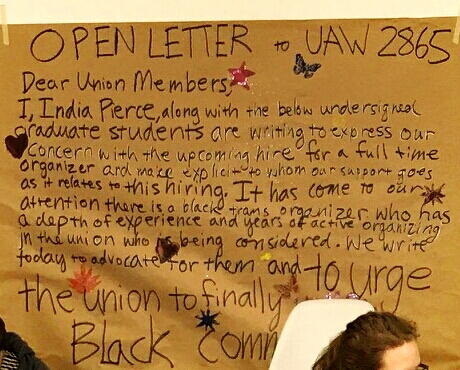 OPEN LETTER to UAW 2865
Dear Union Members,
I, India Pierce, along with the below undersigned
graduate students are writing to express our
concern with the upcoming hire for a full time
organizer and make explicit to whom our support goes
as it relates to this hiring. It has come to our
attention there is a black trans organizer who has
a depth of experience and years of active organizing
in the union who is being considered. We write
today to advocate for them and to urge
the union to finally
Black